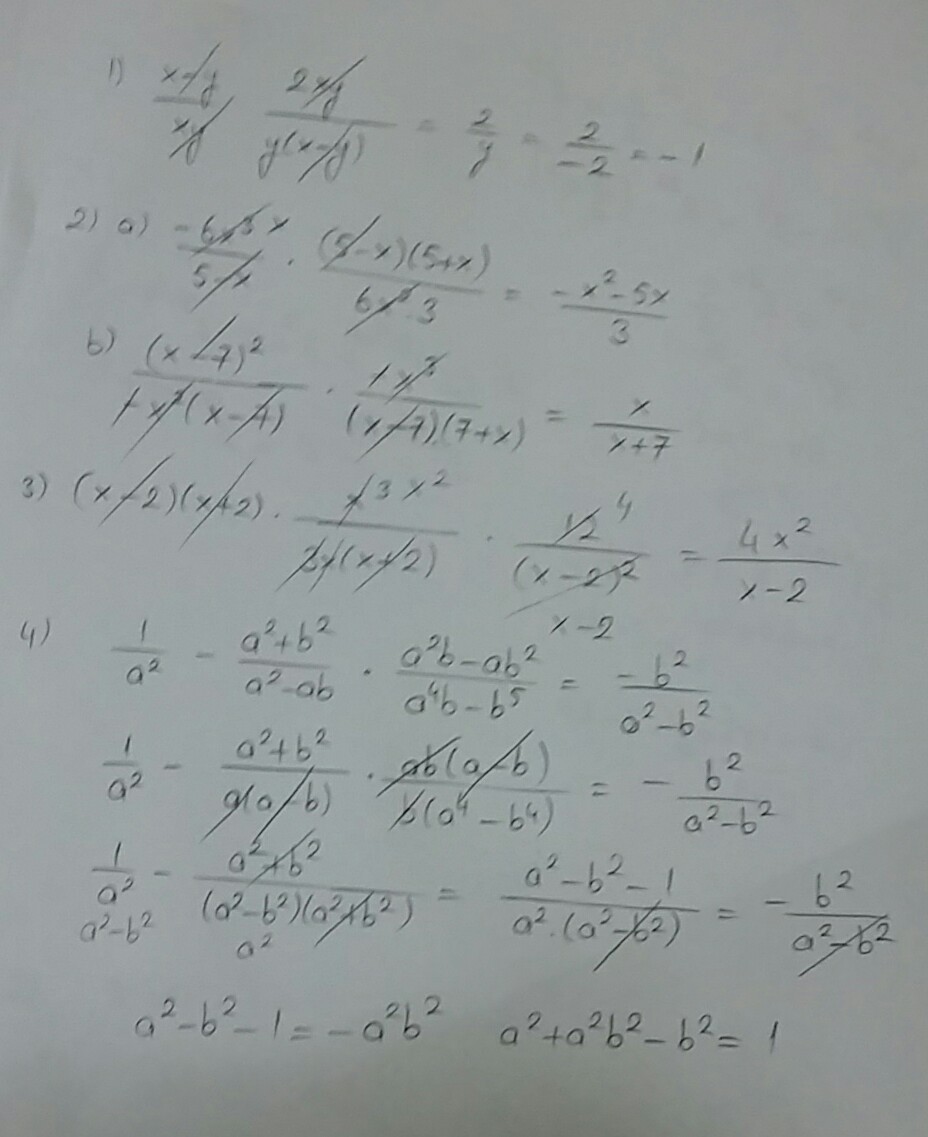 1) x-y/xy 2xy/y(x-y) = 2/y = 2/-2 = -1
2) a) -6x³ x/5-x · (5-x)(5+x)/6x²·3 = -x²-5x/3
b) (x-7)²/1x²(x-7) · 1x³/(x-7)(7+x) = x/x+7
3) (x-2)(x+2) · 3x²/3y(x+2) · 12 4/(x-2)² = 4x²/x-2
x-2
4) 1/a² - a²+b²/a²-ab · a²b-ab²/a⁴b-b⁵ = -b²/a²-b²
1/a² - a²+b²/a(a-b) · ab(a-b)/b(a⁴-b⁴) = - b²/a²-b²
1/a² - a²+b²/(a²-b²)(a²+b²) = a²-b²-1/a²·(a²-b²) = - b²/a²-b²
a²-b² a²
a²-b²-1=-a²b² a²+a²b²-b²= 1